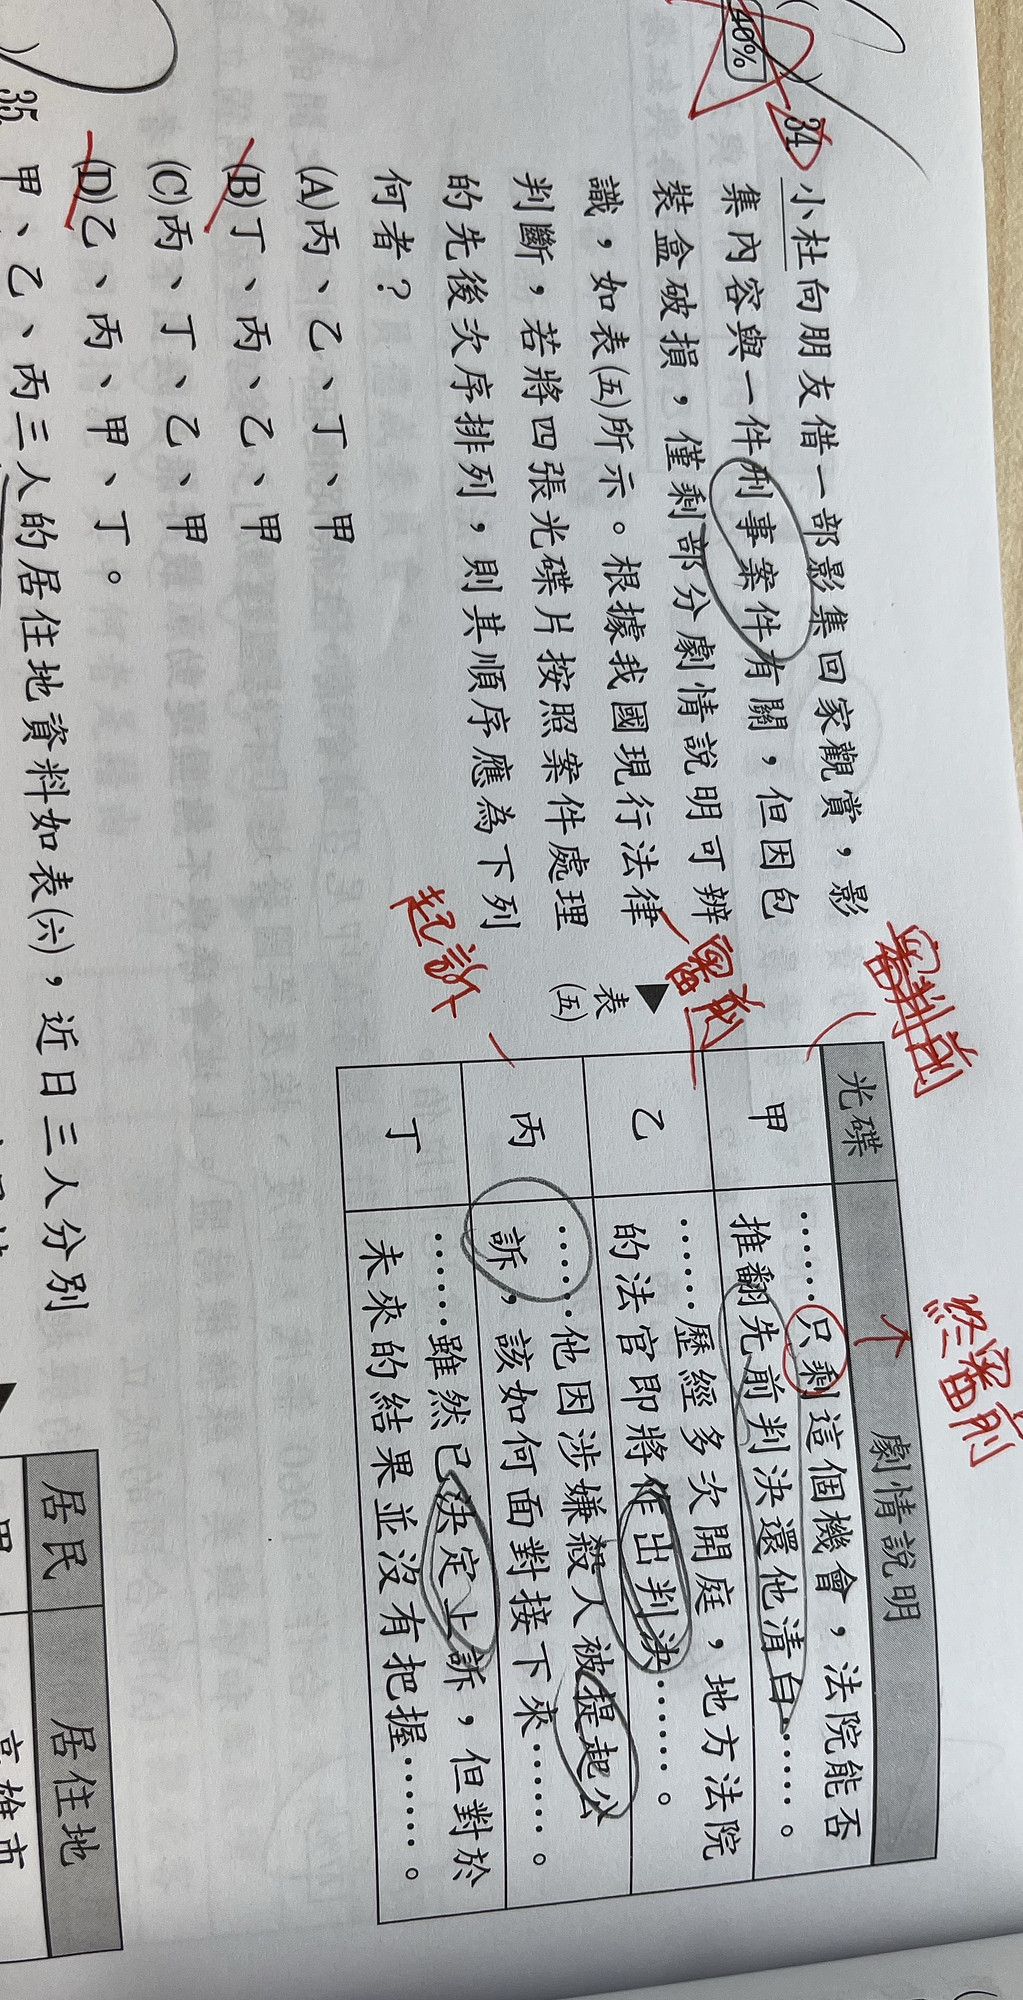 40%
34. 小杜向朋友借一部影集回家觀賞，影
集內容與一件刑事案件有關，但因包
裝盒破損，僅剩部分劇情說明可辨
識，如表(五)所示。根據我國現行法律
判斷，若將四張光碟片按照案件處理
的先後次序排列，則其順序應為下列
何者？
(A)丙、乙、丁、甲
(B)丁、丙、乙、甲
(C)丙、丁、乙、甲
(D)乙、丙、甲、丁。
審判前
終審前
起訴
▲表(五)
光碟 劇情說明
甲 ……只剩這個機會，法院能否
推翻先前判決還他清白……。
乙 ……歷經多次開庭，地方法院
的法官即將作出判決……。
丙 ……他因涉嫌殺人被提起公
訴，該如何面對接下來……。
丁 ……雖然已決定上訴，但對於
未來的結果並沒有把握……。
35. 甲、乙、丙三人的居住地資料如表(六)，近日三人分別
居民 居住地
甲 高雄市